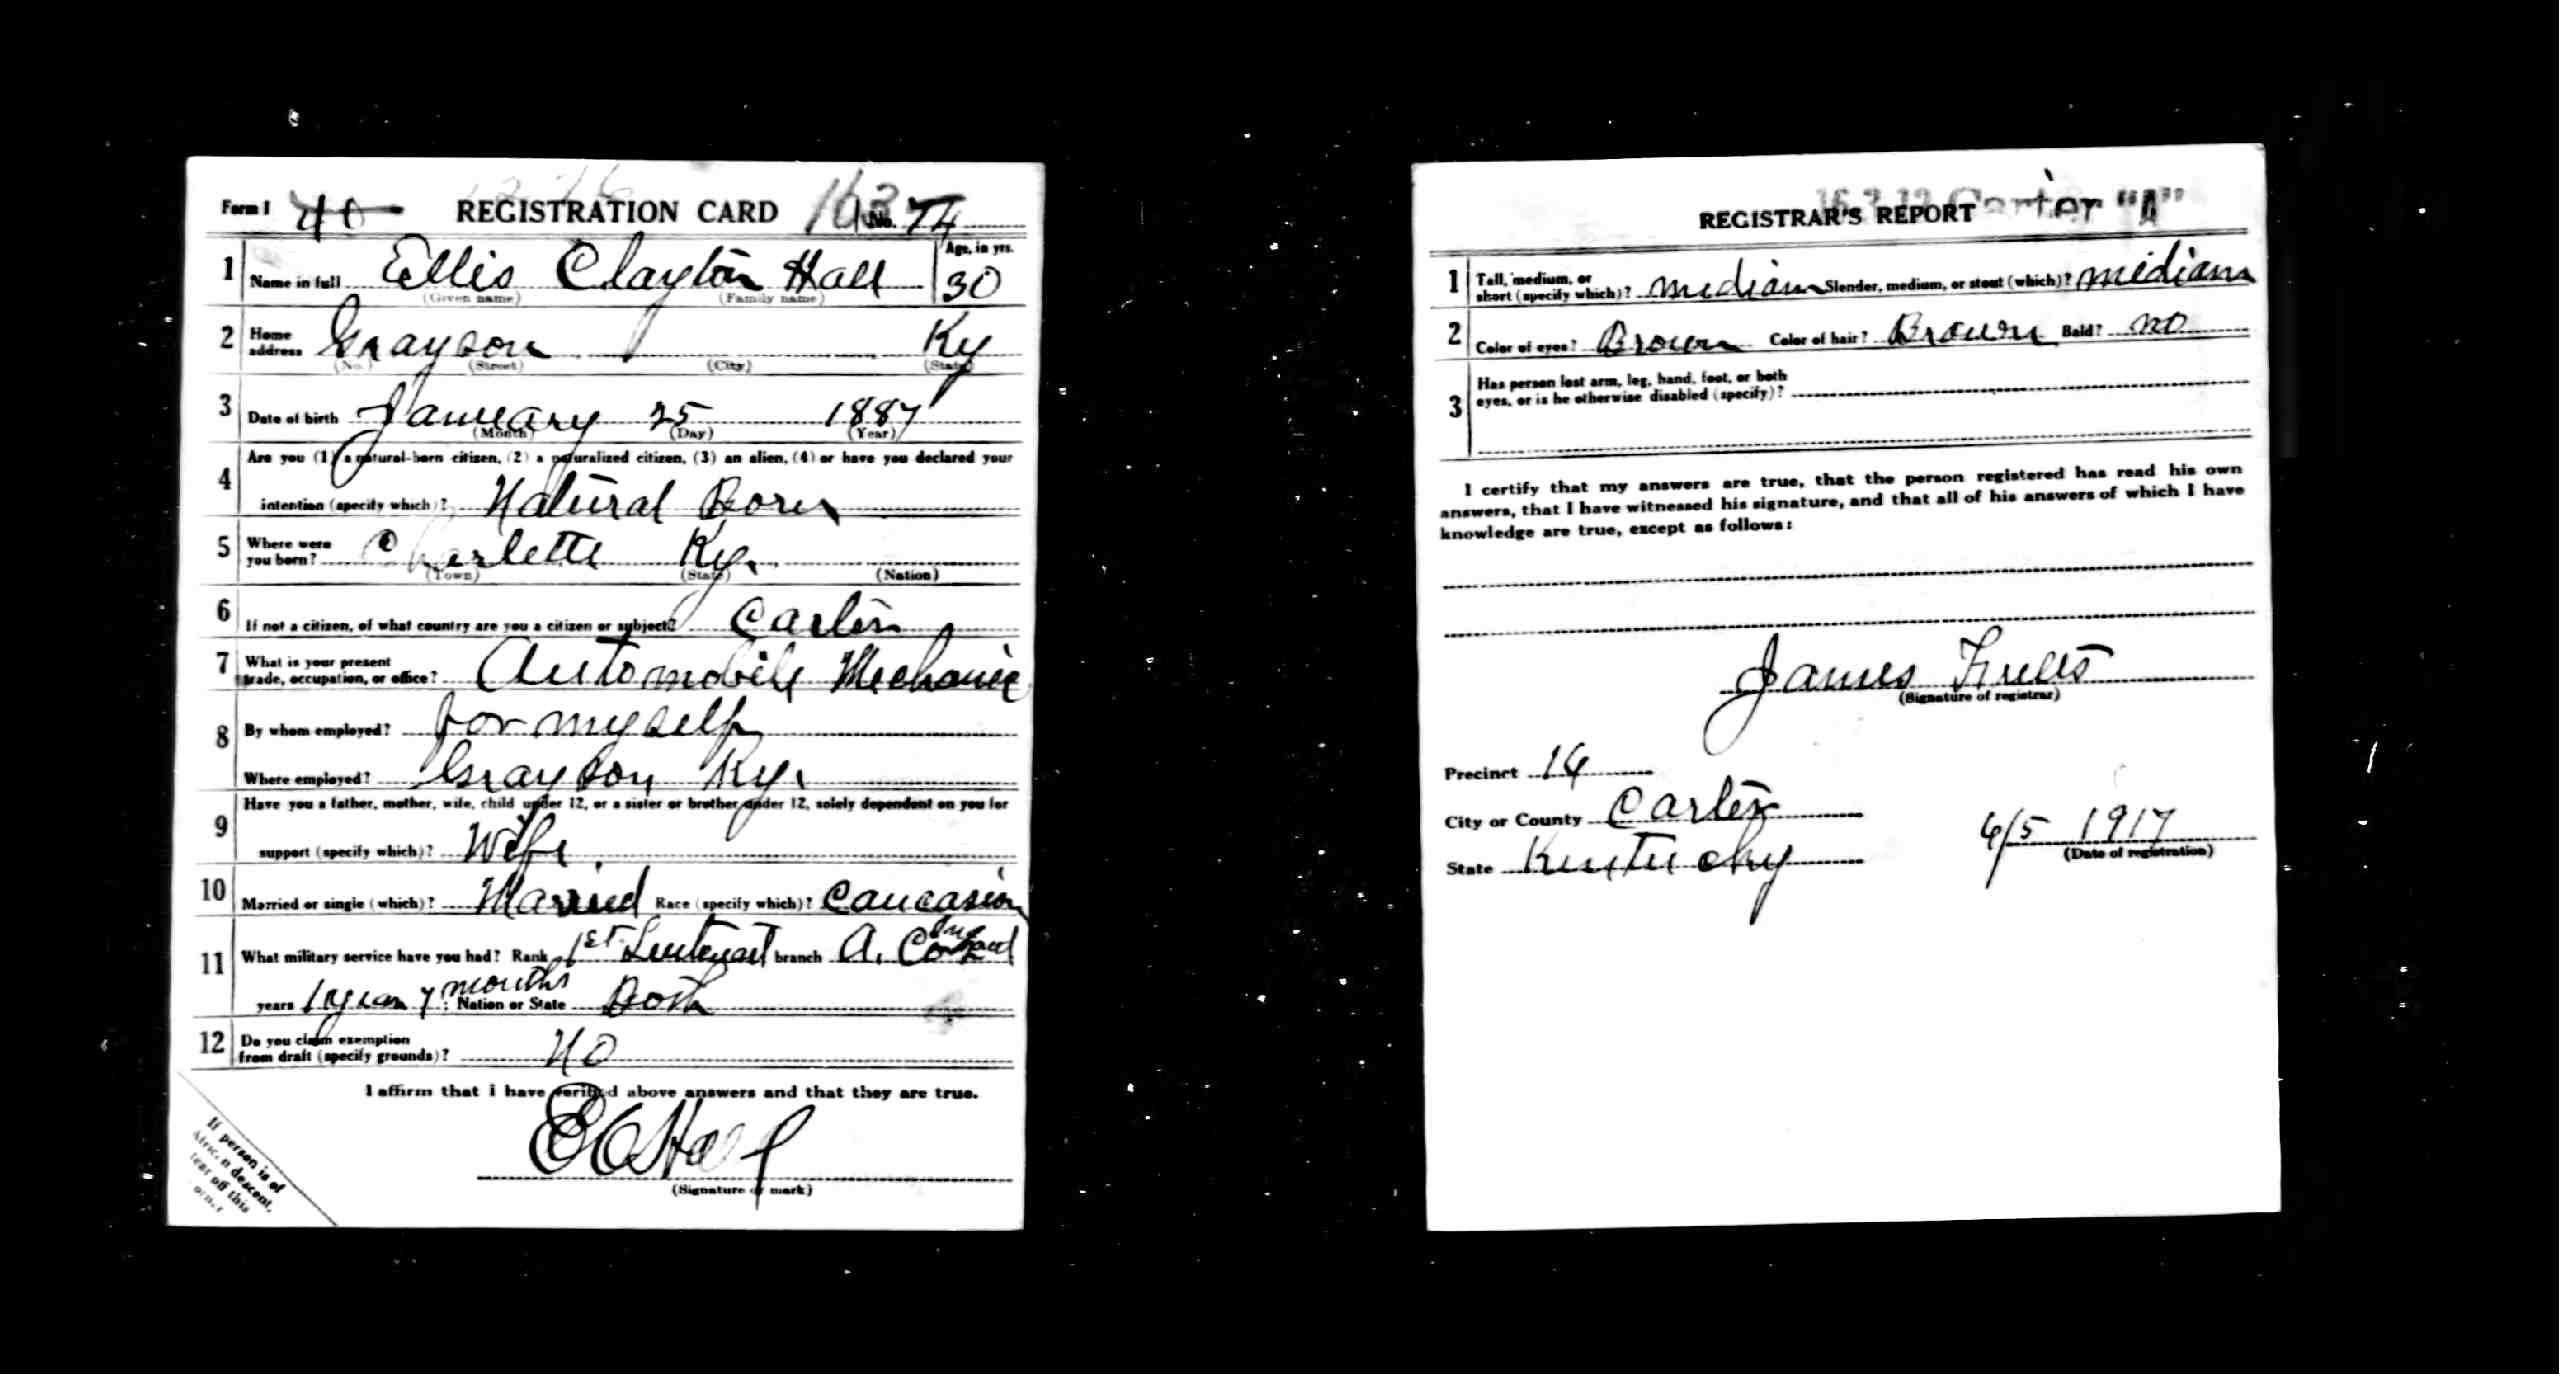 Form 1 40 REGISTRATION CARD No. 74
1 Name in full Ellis Clayton Hall Age, in yrs. 30
(Given name) (Family name)
2 Home address Grayson Ky
(No.) (Street) (City) (State)
3 Date of birth January 25 1887
(Month) (Day) (Year)
4 Are you (1) a natural-born citizen, (2) a naturalized citizen, (3) an alien, (4) or have you declared your
intention (specify which)? Natural Born
5 Where were you born? Ky.
(Town) (State) (Nation)
6 If not a citizen, of what country are you a citizen or subject? Carter
7 What is your present trade, occupation, or office? Automobile Mechanic
8 By whom employed? for myself
Where employed? Grayson Ky.
9 Have you a father, mother, wife, child under 12, or a sister or brother under 12, solely dependent on you for
support (specify which)? Wife.
10 Married or single (which)? Married Race (specify which)? Caucasian
11 What military service have you had? Rank 1st Lieutenant branch A.
years 1 year 7 months; Nation or State Both
12 Do you claim exemption from draft (specify grounds)? no
I affirm that I have verified above answers and that they are true.
E C Hall
(Signature or mark)
If person is of
African descent,
tear off this
corner
16-2-12 Carter "A"
REGISTRAR'S REPORT
1 Tall, medium, or short (specify which)? medium Slender, medium, or stout (which)? medium
2 Color of eyes? Brown Color of hair? Brown Bald? no
3 Has person lost arm, leg, hand, foot, or both
eyes, or is he otherwise disabled (specify)?
I certify that my answers are true, that the person registered has read his own
answers, that I have witnessed his signature, and that all of his answers of which I have
knowledge are true, except as follows:
James
(Signature of registrar)
Precinct 14
City or County Carter
State Kentucky
6/5 1917
(Date of registration)